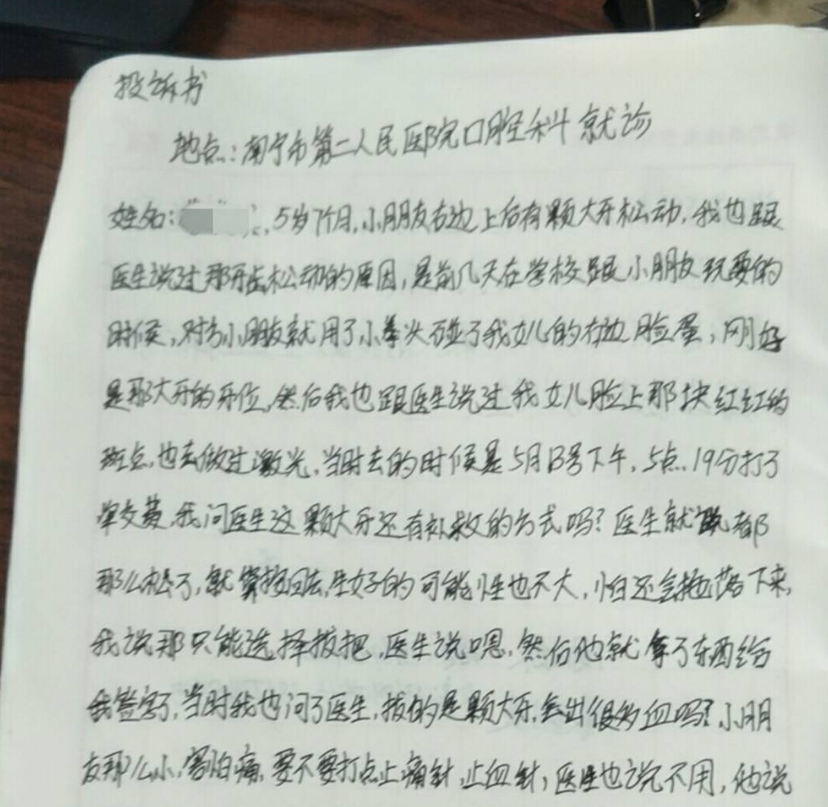 投诉书
地点:南宁市第二人民医院口腔科就诊
姓名: ,5岁7个月,小朋友右边上后有颗大牙松动,我也跟
医生说过那牙齿松动的原因,是前几天在学校跟小朋友玩耍的
时候,对方小朋友就用了小拳头碰了我女儿的右边脸蛋,刚好
是那大牙的牙位,然后我也跟医生说过我女儿脸上那块红红的
斑点,也去做过激光,当时去的时候是5月13号下午,5点.19分打了
单交费,我问医生这颗大牙还有补救的方式吗?医生就说都
那么松了,就算按回去,生好的可能性也不大,归还会掉落下来,
我说那只能选择拔把,医生说嗯,然后他就拿了东西给
我签字了,当时我也问了医生,拔的是颗大牙,会出很多血吗?小朋
友那么小,害怕痛,要不要打点止痛针,止血针,医生也说不用,他说